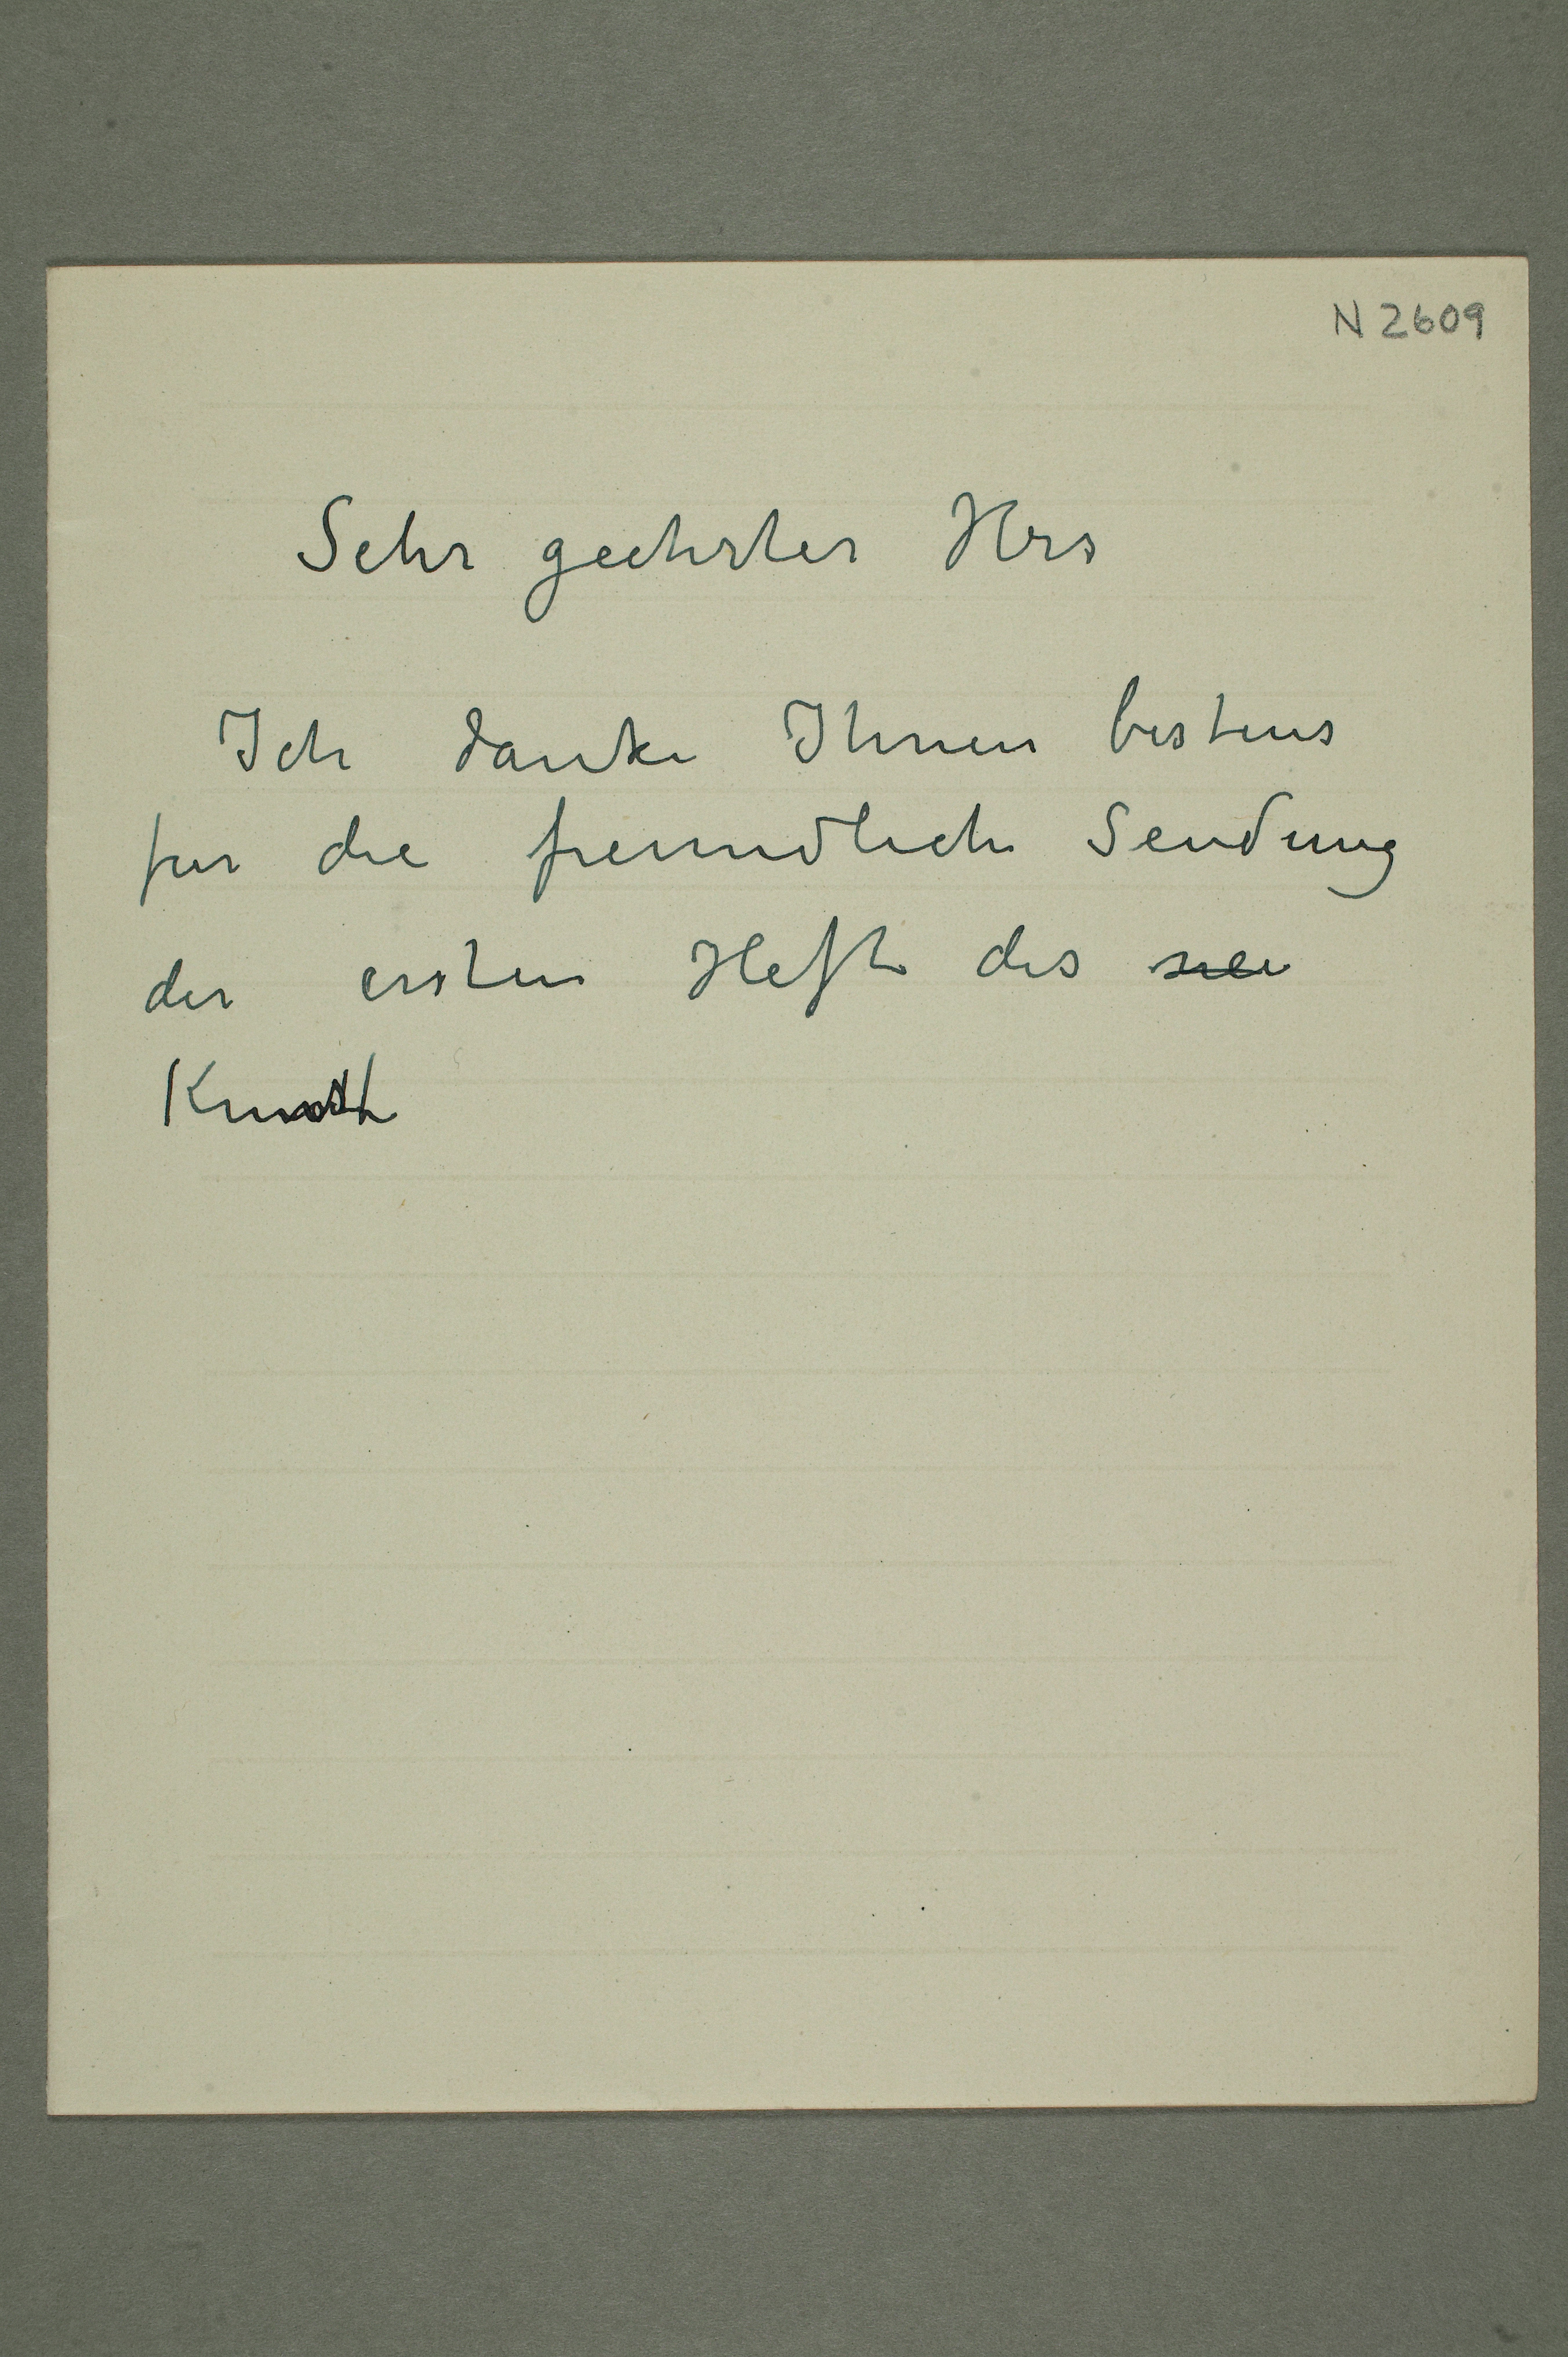 N 2609
Sehr geehrter Hrs
Ich danke Ihnen bestens
fur die freundliche Sendung
der ersten Hefte des
Kunst